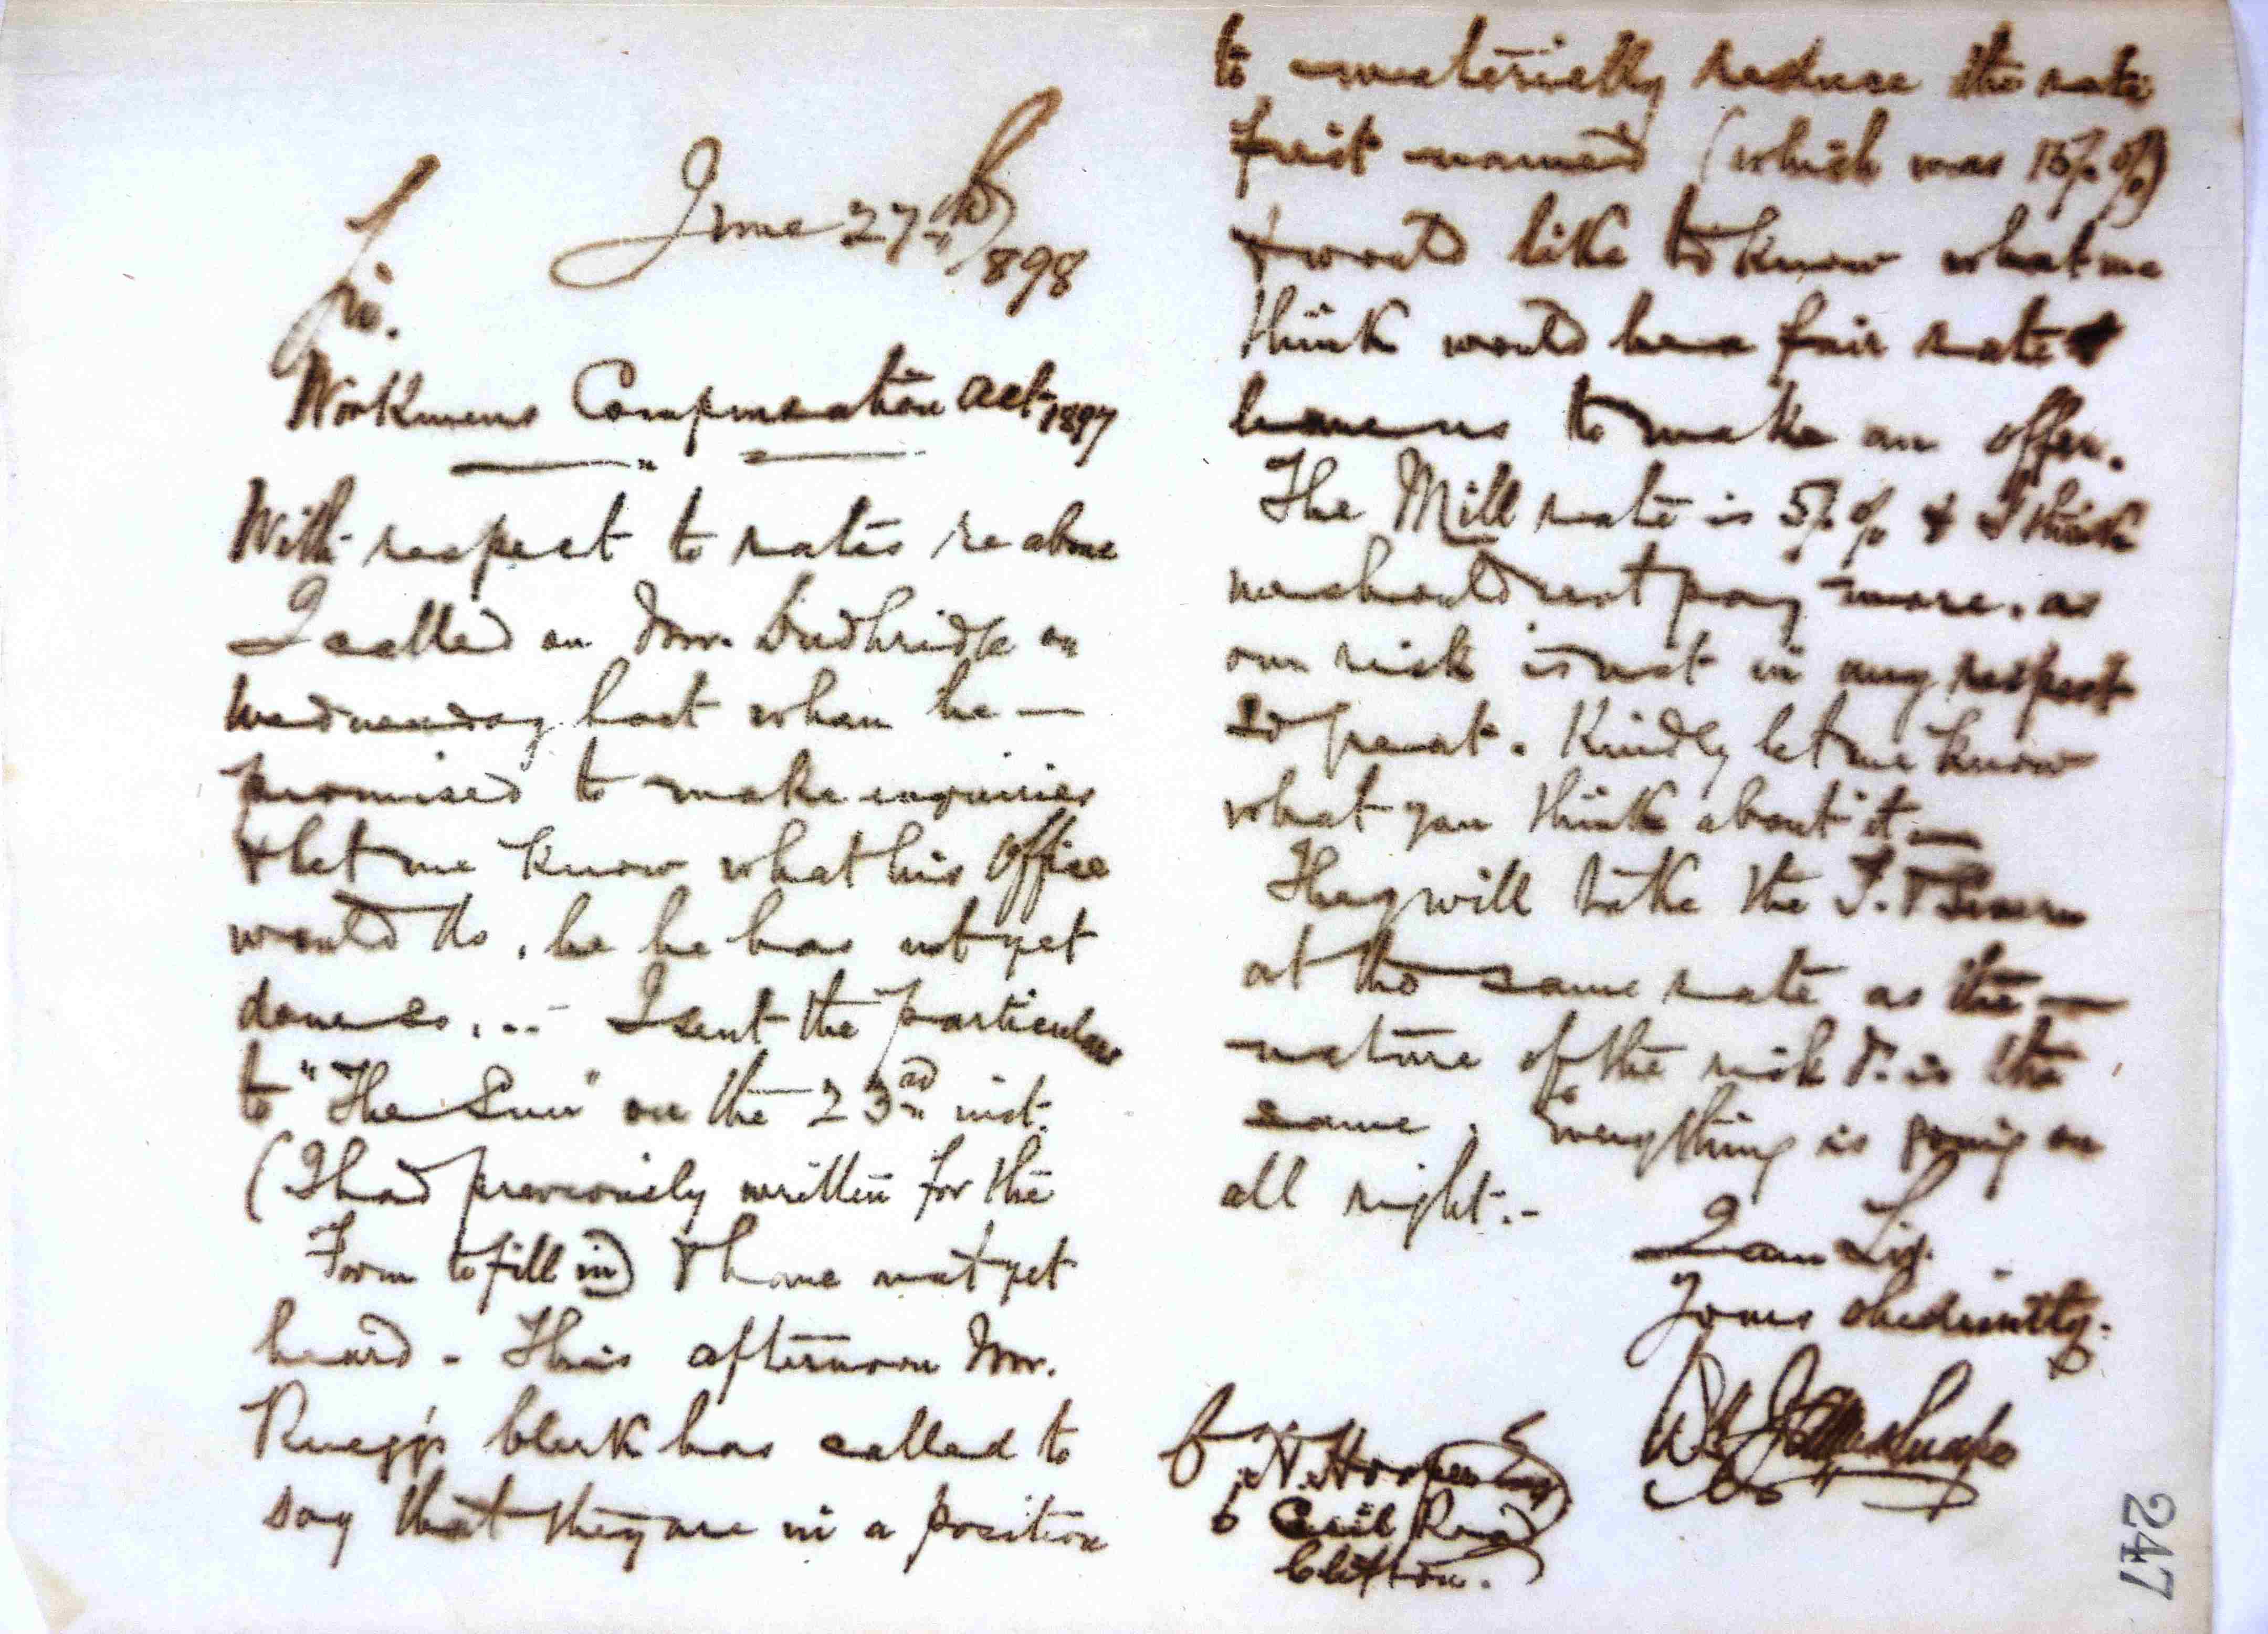 June 27th/1898
Sir.
Workmens Compensation Act 1897
With respect to rates re above
I called on Mr. Dudbridge on
Wednesday last when he —
promised to make enquiries
& let me know what his Office
would do, he he has not yet
done so. .. - I sent the particulars
to "The Sun" on the 23rd inst.
(I had previously written for the
Form to fill in) & have not yet
heard - This afternoon Mr.
Ruegg's Clerk has called to
say that they are in a position
to materially reduce the rate
first named (which was 15/. %)
& would like to know what we
think would be a fair rate &
leave us to make an offer.
The Mill rate is 5/. % & I think
we should not pay more, as
our risk is not in any respect
so great. Kindly let me know
what you think about it —
They will take the S. T Severn
at the same rate as the —
nature of the risk &c. is the
same. Everything is going on
all right. -
I am Sir.
Yours obediently.
C N. Hooper Esq
6 Cecil Road
Clifton.
247